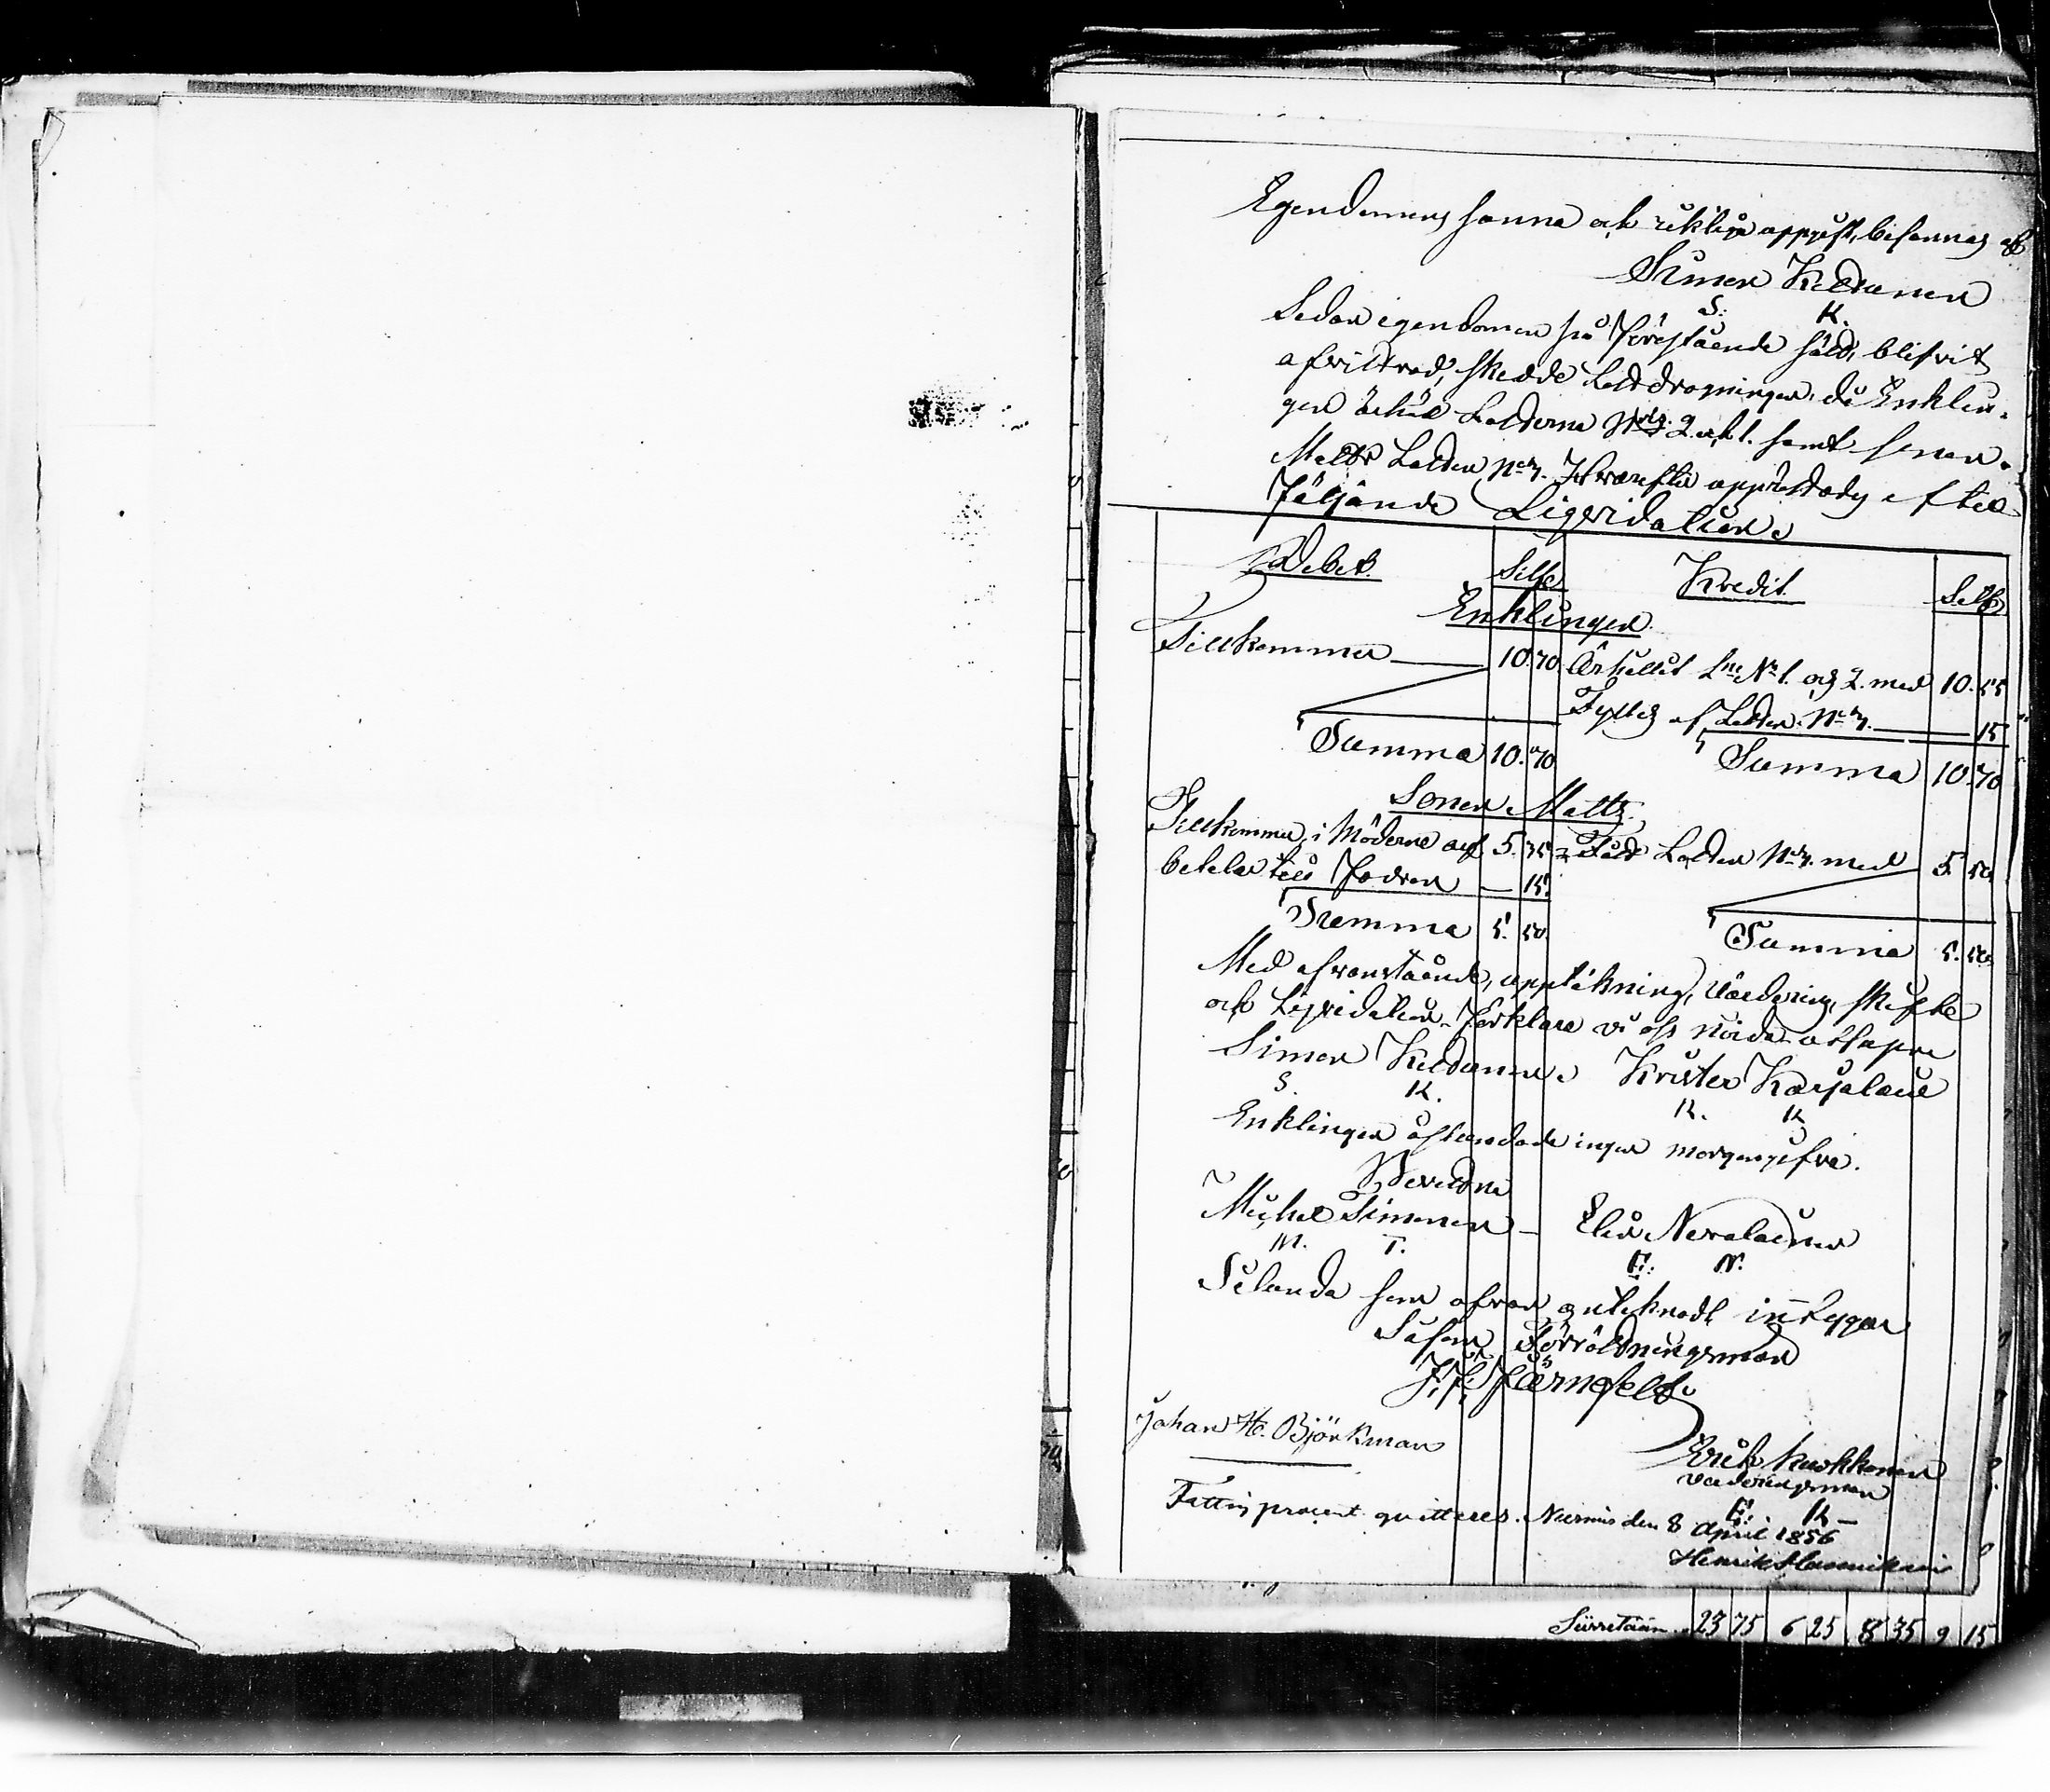 Egendomens sanna och riktiga uppgift, besannas af
Simon Keldanen
S. K.
Sedan egendomen på förestående sätt, blifvit
afvittrad, skedde Lottdragningen, då Enklin-
gen erhöll Lotterna N:ris 2 och 1. samt sonen
Matts Lotten N:o 3. Hvarefter upprättades efter-
följande Liqvidation.
Debet. Silf. Kredit Silf.
Enklingen.
Tillkommer 10. 70. Erhållit L:ne N:o 1. och 2. med 10. 55
Fylles af Lotten N:o 3. 15
Summa 10. 70 Summa 10. 70
Sonen Matts.
Tillkommer i Möderne arf 5. 35 Fådt Lotten N:o 3. med 5. 50
betalar till Fadren 15.
Summa 5. 50. Summa 5. 50
Med ofvanstående, uppteckning, värdering, skifte
och Liqvidation förklara vi oss nöjda attestera
Simon Keldanen Krister Karjalain
S. K. K. K
Enklingen åstundade ingen morgongåfva.
Bevittna
Michel Simonen Elias Nevalainen
M. T. E. N.
Sålunda som ofvan antecknadt intygar
Såsom Förrättningsman
J. F. Järnefelt
Johan H. Björkman
Erik Kuokkonen
värderingsman
E. K
Fattigprocent quitteres. Nurmis den 8 April 1856
Henrik
Siirretään 23 75 6 25 8 35 9 15